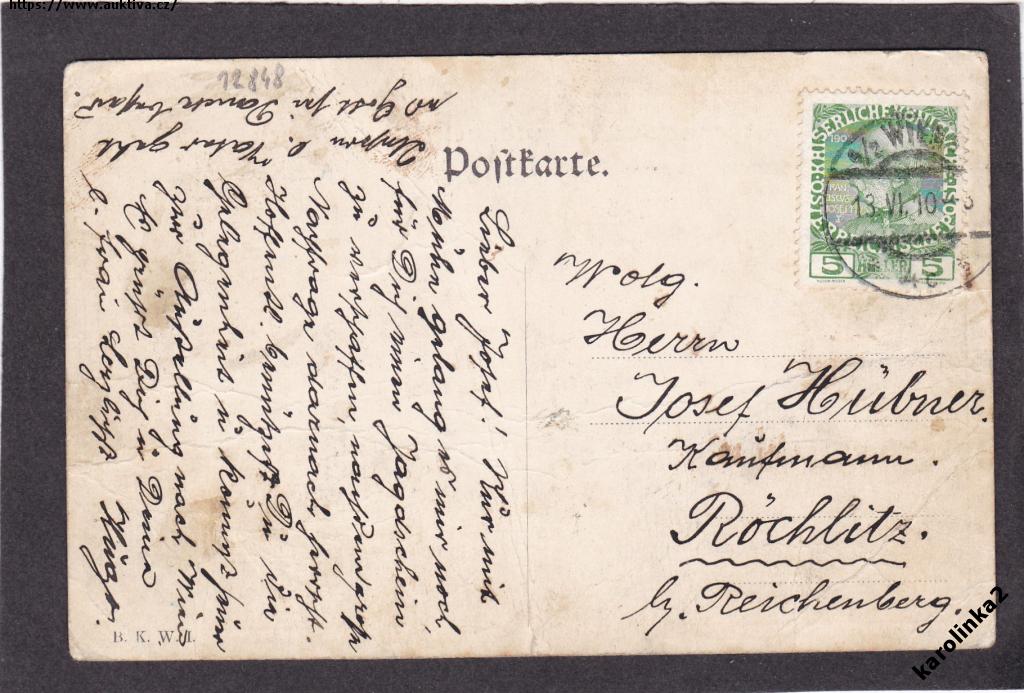 https://www.auktiva.cz/
12848
Postkarte.
1908
KAISERLICHE KÖNIGL
5 HELLER 5
WIEN
13 VI 10
Wolg.
Herrn
Josef Hübner.
Kaufmann.
Röchlitz.
b/. Reichenberg.
Lieber Josef! Nur mit
Mühe gelang es mir noch,
für Dich einen Jagdschein
zu verschaffen, nachdem
Nachfrage darnach herrscht.
Hoffentl. benützst Du die
Gelegenheit u. kommst
zur Ausstellung nach Wien
Es grüßt Dich u. Deine
l. Frau herzlichst
Hugo.
Unserm l. Vater geht
B. K. W. I.
karolinka2